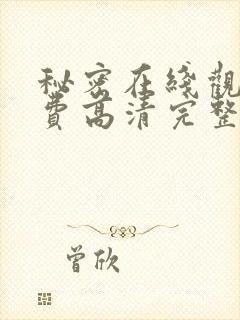 秘密在綫觀
費高清完整
曾欣